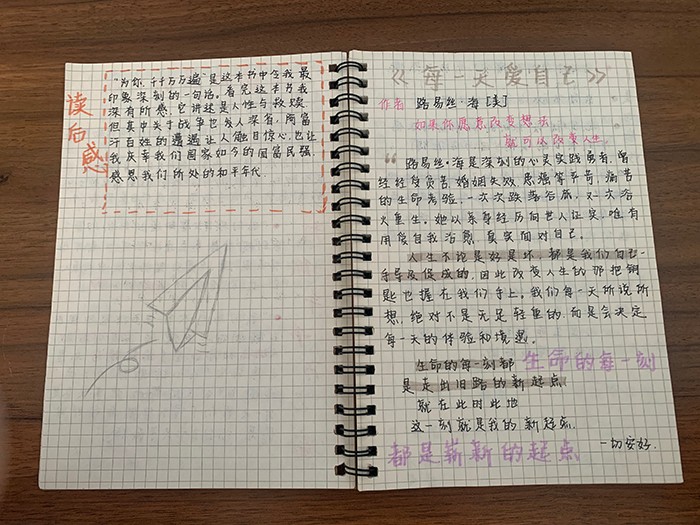 读后感
"为你,千千万万遍"是这本书中令我最
印象深刻的一句话。看完这本书我
深有所感,它讲述是人性与救赎
但其中关于战争也发人深省,阿富
汗百姓的遭遇让人触目惊心,也让
我庆幸我们国家如今的国富民强
感恩我们所处的和平年代
《每一天爱自己》
作者 路易丝·海[美]
如果你愿意改变想法
就可以改变人生
"路易丝·海是深刻的心灵实践勇者,曾
经经受贫苦、婚姻失败、患癌等苛苛、痛苦
的生命考验,一次次跌落谷底,又一次浴
火重生。她以亲身经历向世人证实,唯有
用爱自我治愈,真实面对自己。
人生不论是好是坏,都是我们自己一
手导及促成的,因此改变人生的那把钥
匙也握在我们手上。我们每一天所说所
想,绝对不是无足轻重的,而是会决定
每一天的体验和境遇。
生命的每一刻都 生命的每一刻
是走出旧路的新起点
就在此时此地
这一刻就是我的新起点.
都是崭新的起点 一切安好.